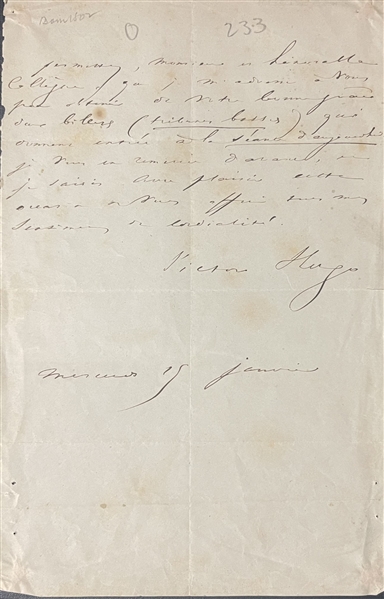 233
permettez, Monsieur et honorable
Collègue, que je m'adresse à vous
pour obtenir de votre bonne grâce
deux billets (tribunes basses) qui
donnent entrée à la séance d'aujourd'hui
je vous en remercie d'avance, et
je saisis avec plaisir cette
occasion de vous offrir tous mes
sentiments de cordialité.
Victor Hugo
mercredi 15 janvier